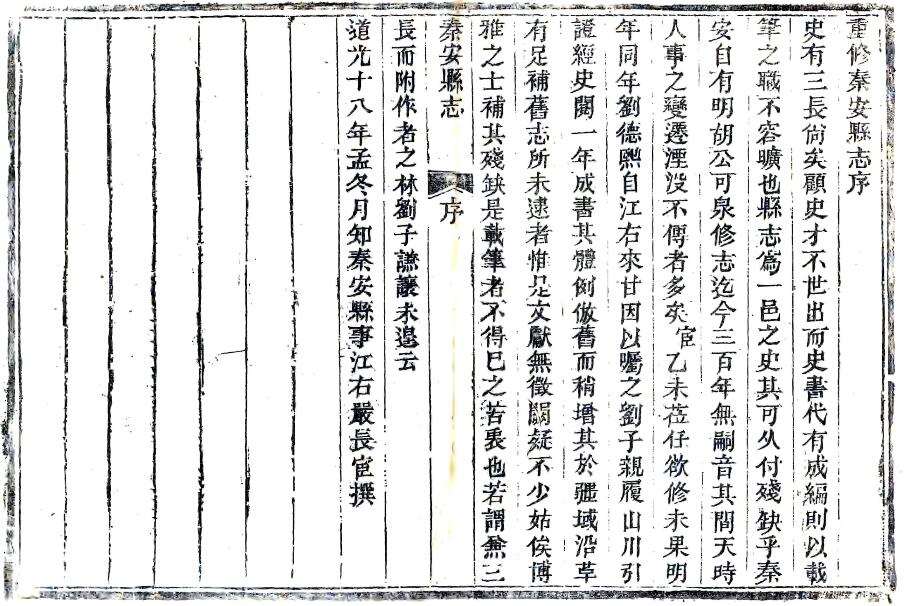 重修秦安縣志序
史有三長尙矣顧史才不世出而史書代有成編則以載
筆之職不容曠也縣志爲一邑之史其可久付殘缺乎秦
安自有明胡公可泉修志迄今三百年無嗣音其間天時
人事之變遷湮没不傳者多矣宦乙未莅任欲修未果明
年同年劉德熙自江右來甘因以囑之劉子親履山川引
證經史閱一年成書其體例倣舊而稍增其於疆域沿革
有足補舊志所未逮者惟是文獻無徵闕疑不少姑俟博
雅之士補其殘缺是載筆者不得已之苦衷也若謂兼三
秦安縣志
序
長而附作者之林劉子謙讓未遑云
道光十八年孟冬月知秦安縣事江右嚴長宦撰